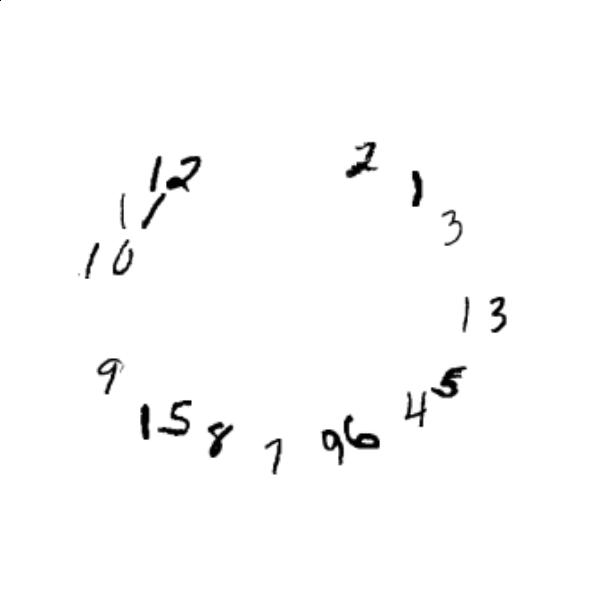 12
2
1
11
3
10
13
9
5
4
15
8
96
7